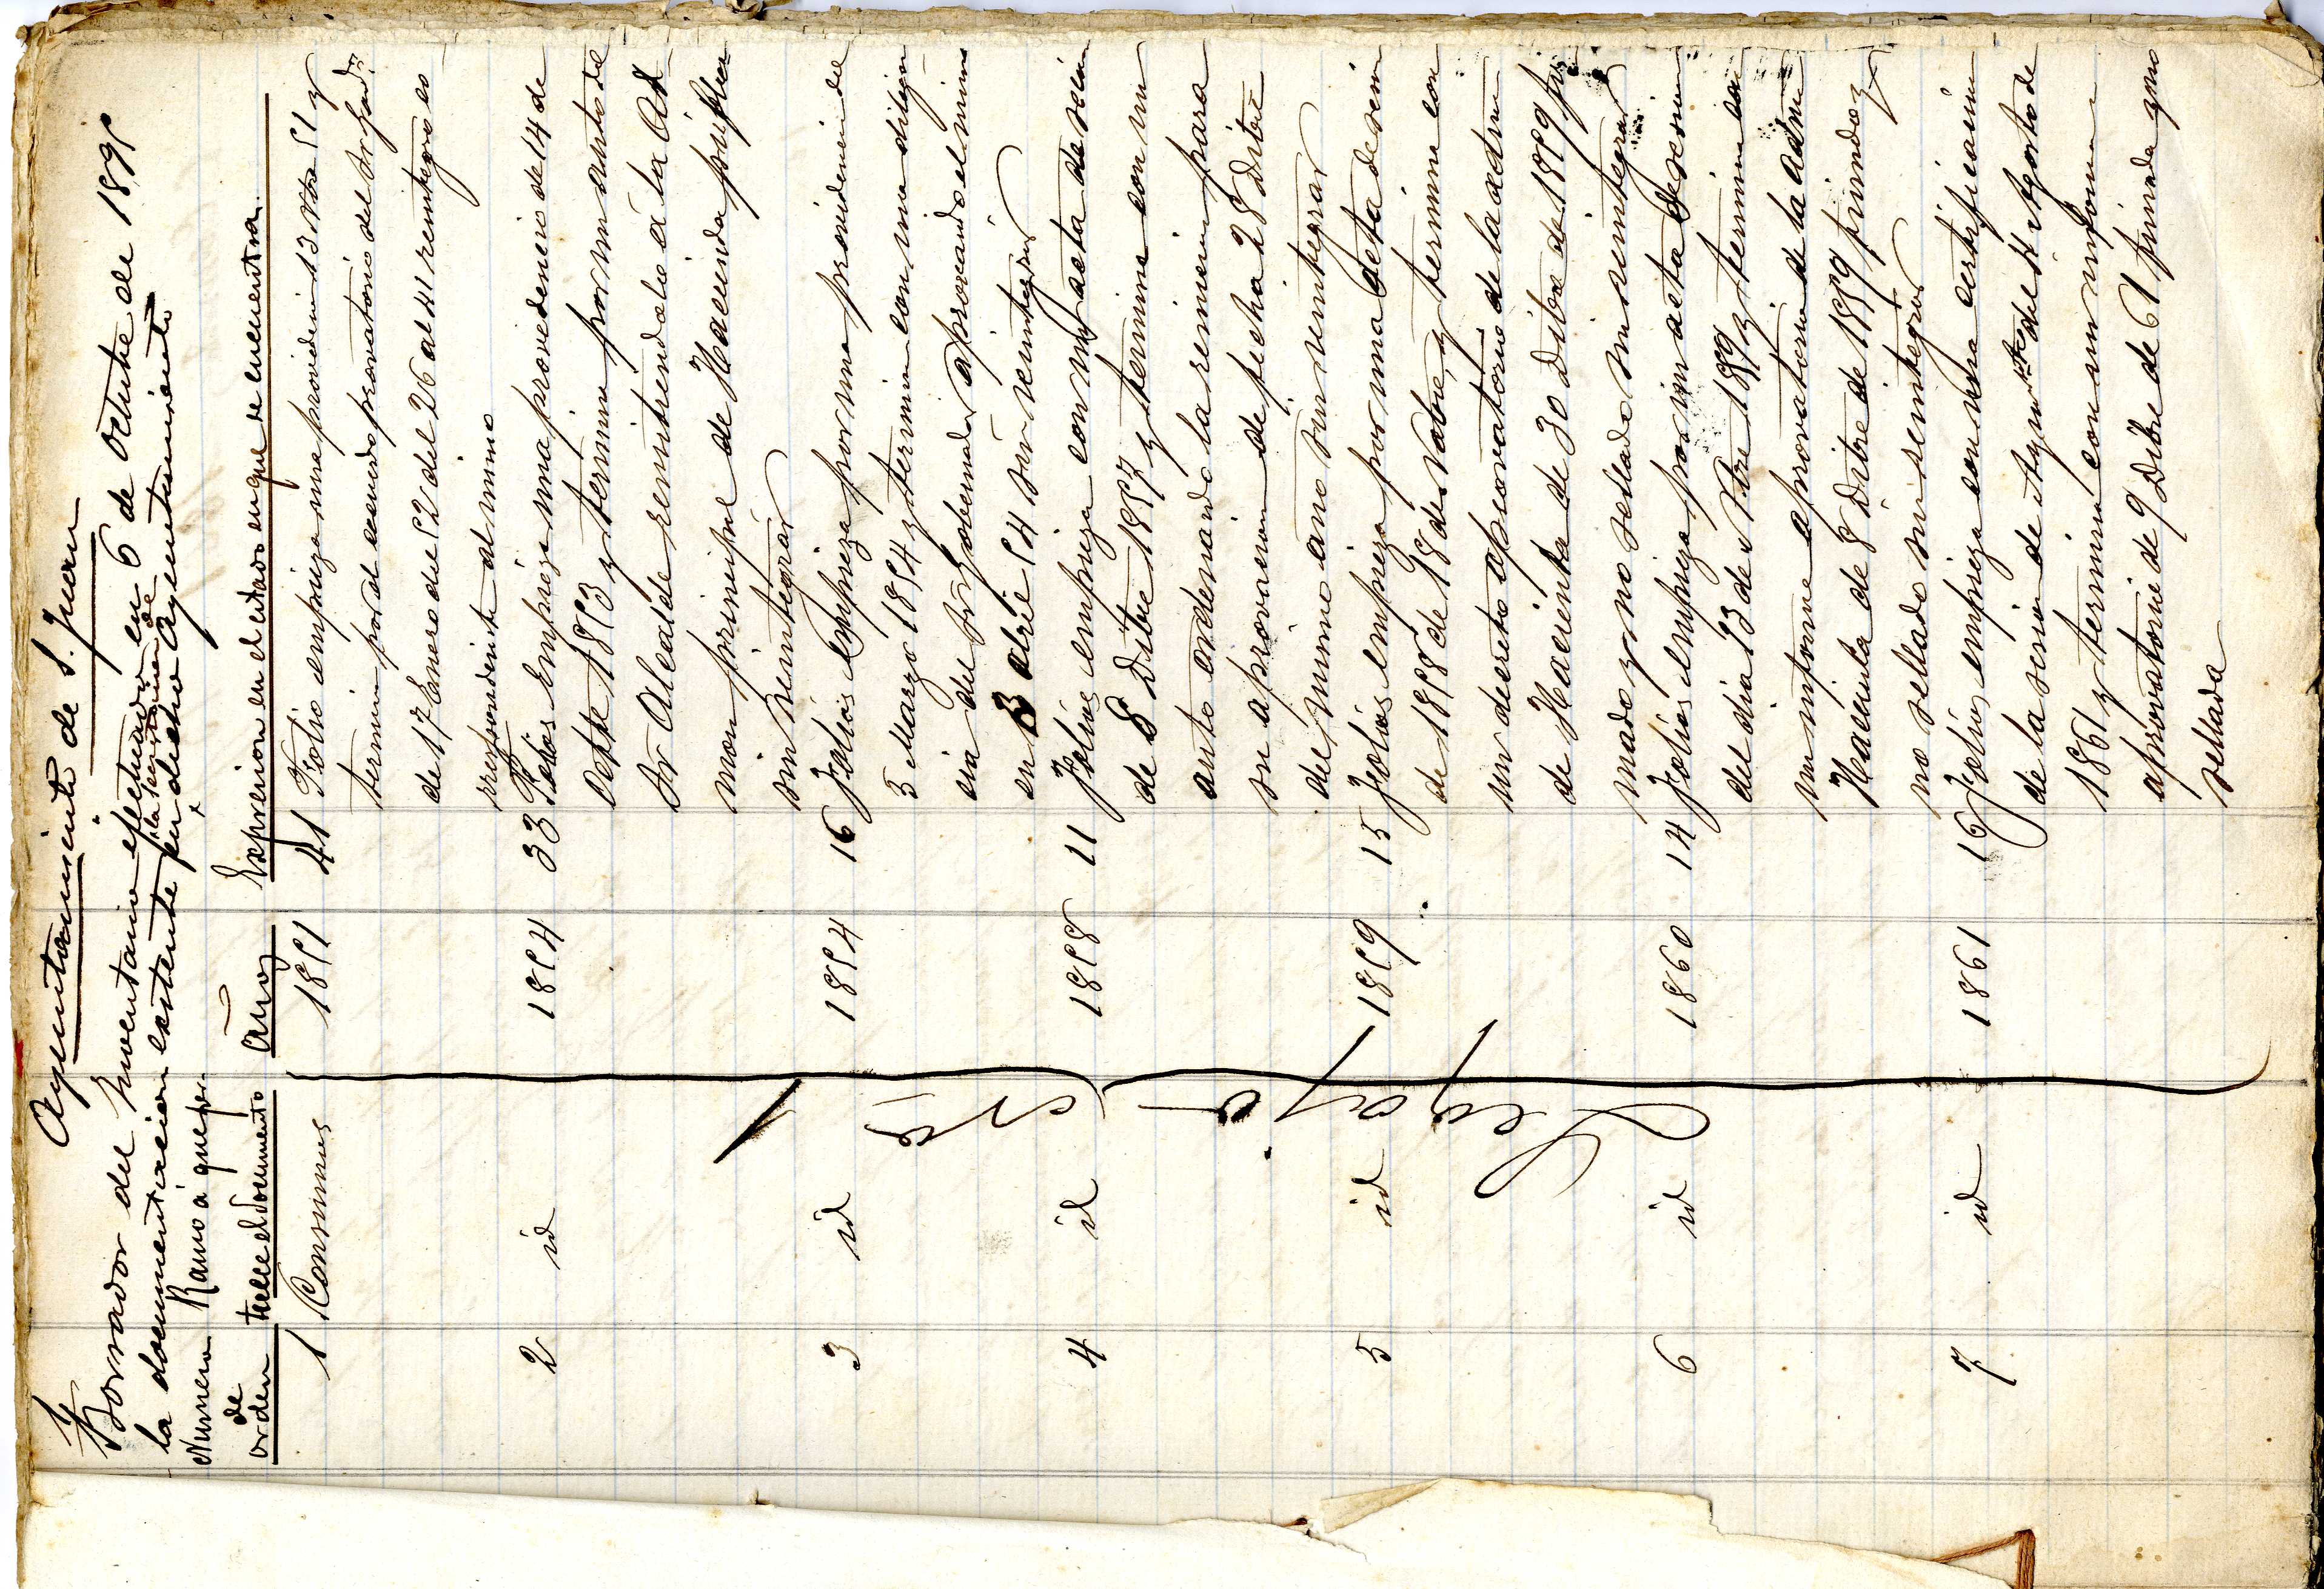 1
Ayuntamiento de S. Juan
Borrador del Inventario efectuado en 6 de Octubre de 1895
la documentacion existente en la secretaria de dicho Ayuntamiento
Numero
de
orden
Ramo á que per-
tenece el documento
Años
Expresion en el estado en que se encuentra.
Legajo No 1
1 Consumos 1851 41 Folio empieza una providencia 13 Nbre 51 y
termina por el acuerdo provatorio del Sr Gov.
de 17 Enero del 52 del 26 al 41 reintegro co
rrespondiente al mimo
2 id 1854 33 Folios Empieza una providencia de 14 de
Octbe 1853 y termina por un auto del
Sr Alcalde remitiendolo á la Ad
mon principal de Hacienda publica
sin reintegrar
3 id 1854 16 Folios empieza por una providencia del
5 Marzo 1854 y termina con una diligen
cia del Sr Gobernador aprovando el mimo
en 3 abril 54 sin reintegrar
4 id 1858 11 Folios empieza con un acta de secion
de 8 Ditre 1857 y termina con un
auto ordenando la remicion para
su aprovacion de fecha 28 Ditre
del mimo año sin reintegrar
5 id 1859 15 Folios empieza por una acta de sesion
de 1858 de 18 de Nobre, y termina con
un decreto aprovatorio de la admon
de Hacienda de 30 Ditre de 1859 fir
mado y no sellado sin reintegrar
6 id 1860 14 Folios empieza por un acta de sesion
del dia 13 de Nbre 1859 y termina con
un informe aprovatorio de la admon
Hacienda de 8 Ditre de 1859 firmado y
no sellado sin reintegrar
7 id 1861 16 Folios empieza con una certificacion
de la sesion de Ayunto del 4 Agosto de
1861 y termina con un informe
aprovatorio de 9 Dibre de 61 firmada y no
sellada